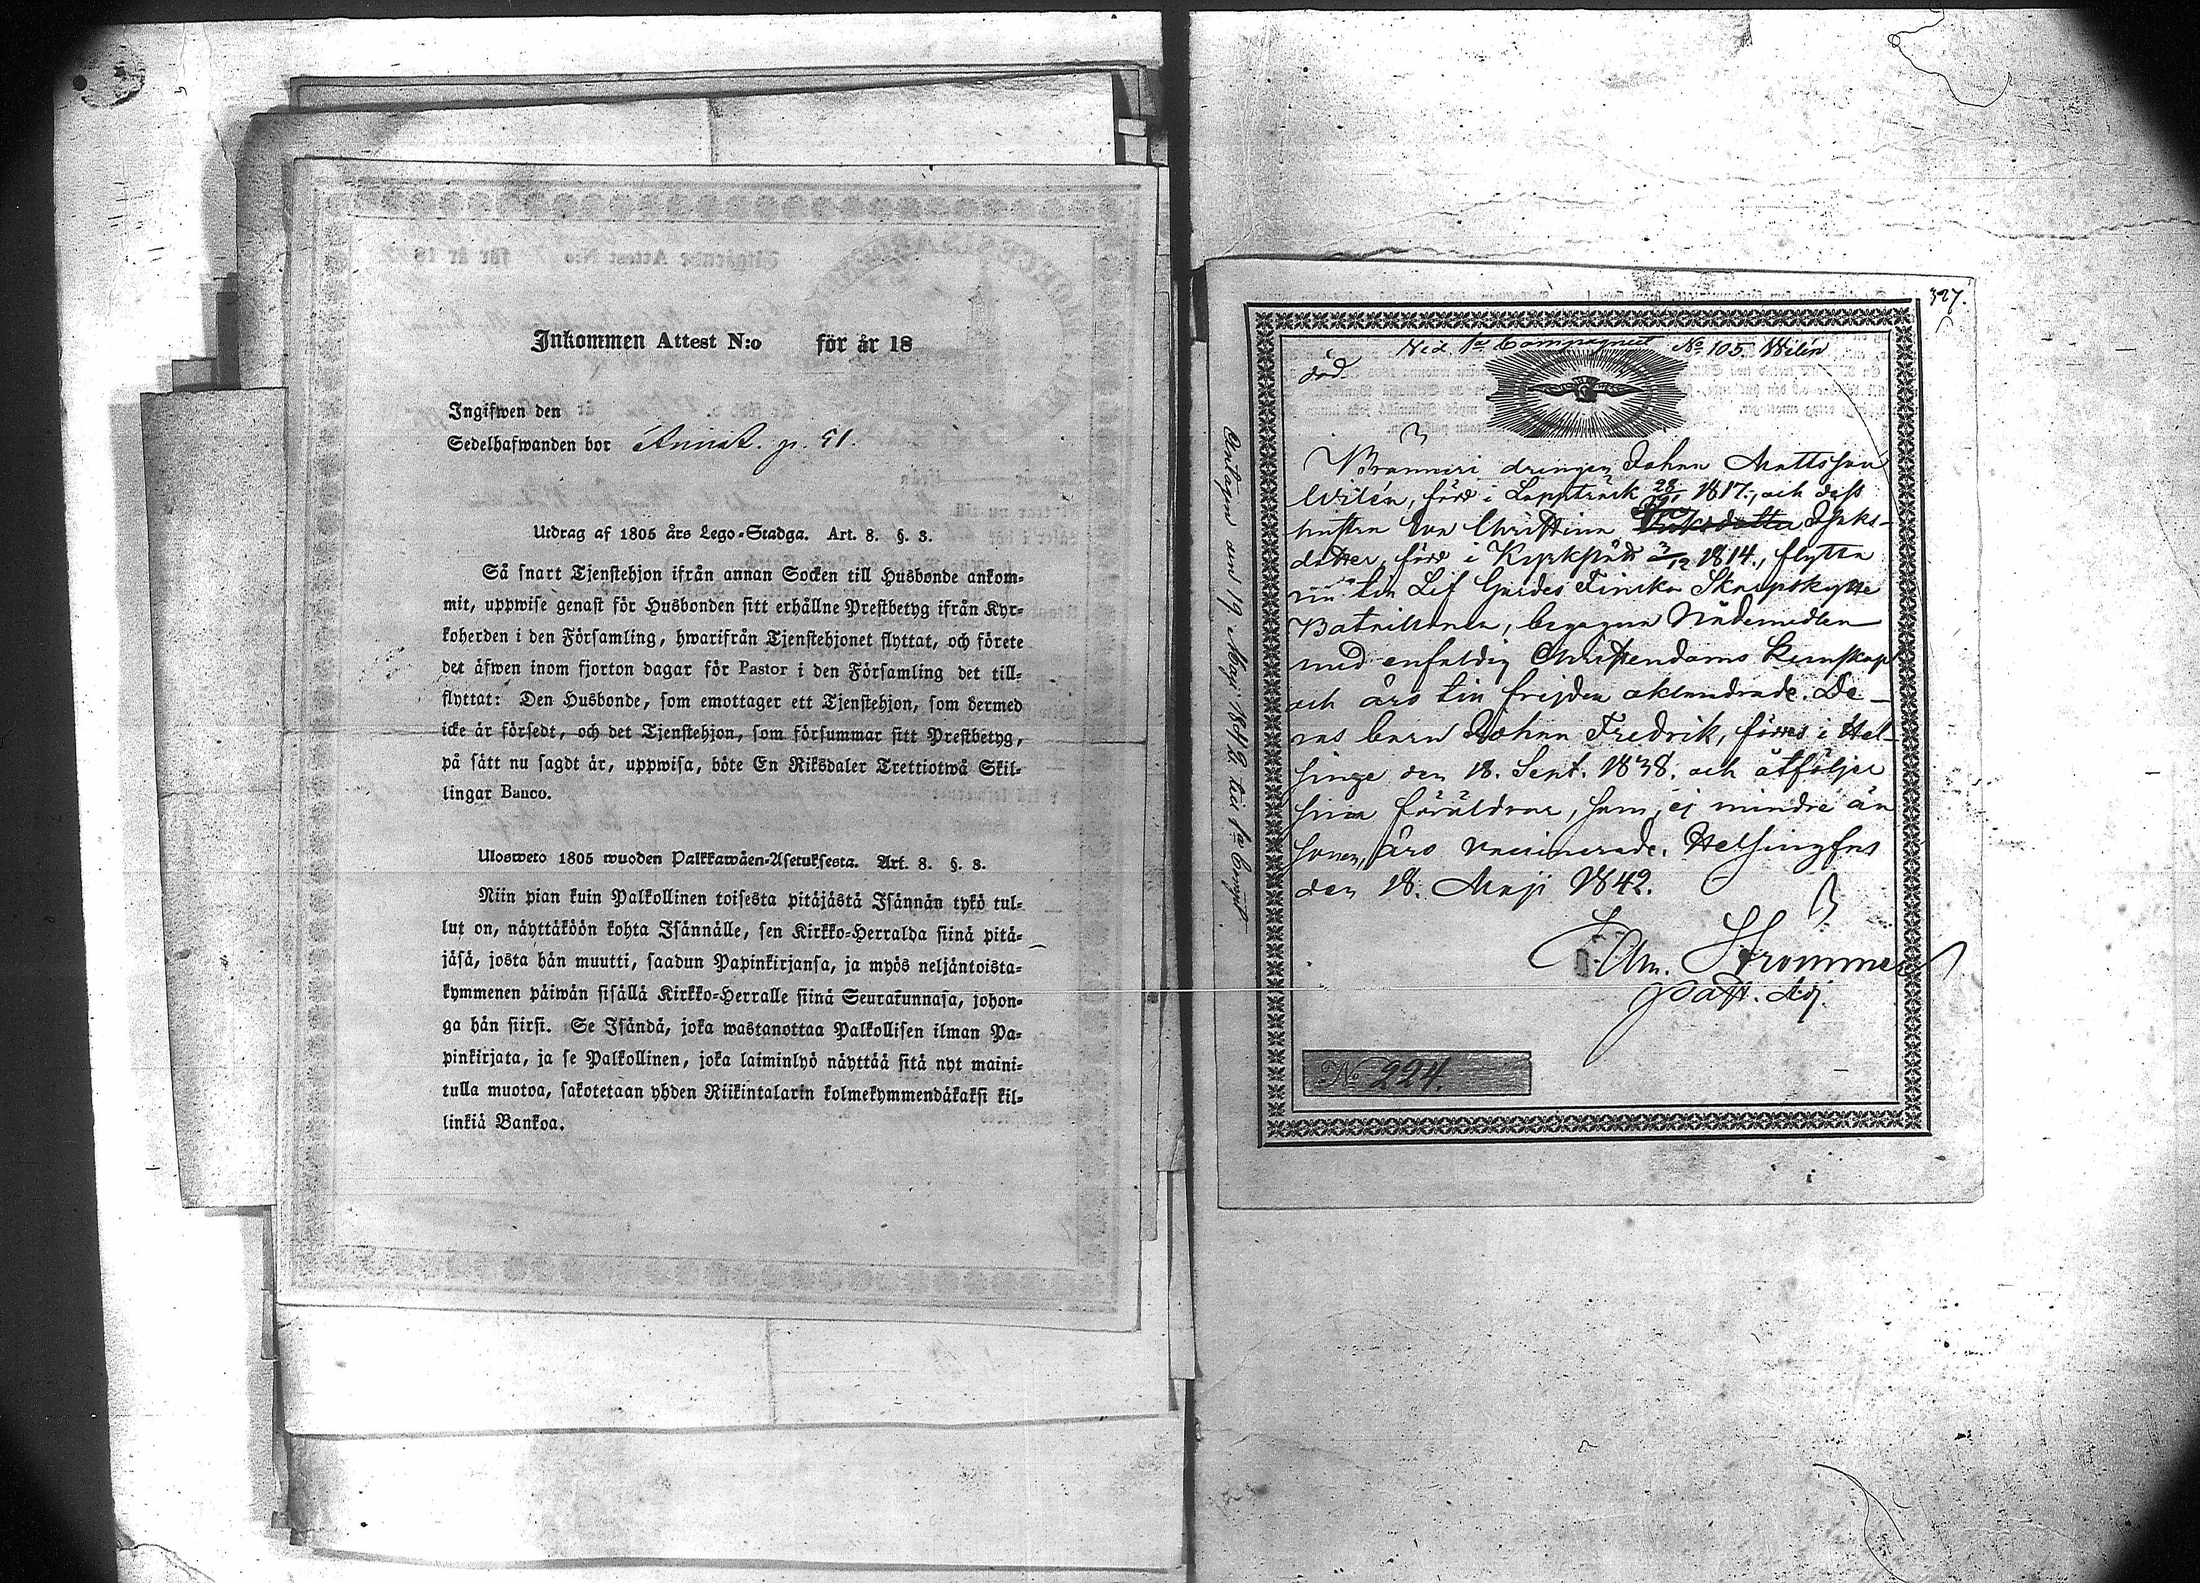 Inkommen Attest N:o för år 18
Ingifwen den
Sedelhafwanden bor p. 51.
Utdrag af 1805 års Lego-Stadga. Art. 8. §. 3.
Så snart Tjenstehjon ifrån annan Socken till Husbonde ankom-
mit, uppwise genast för Husbonden sitt erhållne Prestbetyg ifrån Kyr-
koherden i den Församling, hwarifrån Tjenstehjonet flyttat, och förete
det äfwen inom fjorton dagar för Pastor i den Församling det till-
flyttat: Den Husbonde, som emottager ett Tjenstehjon, som dermed
icke är försedt, och det Tjenstehjon, som försummar sitt Prestbetyg,
på sätt nu sagdt är, uppwisa, böte En Riksdaler Trettiotwå Skil-
lingar Banco.
Ulosweto 1805 wuoden Palkkawäen-Asetuksesta. Art. 8. §. 3.
Niin pian kuin Palkollinen toisesta pitäjästä Isännän tykö tul-
lut on, näyttäköön kohta Isännälle, sen Kirkko-Herralda siinä pitä-
jäsä, josta hän muutti, saadun Papinkirjansa, ja myös neljäntoista-
kymmenen päiwän sisällä Kirkko-Herralle siinä Seurakunnasa, johon-
ga hän siirsi. Se Isändä, joka wastanottaa Palkollisen ilman Pa-
pinkirjata, ja se Palkollinen, joka laiminlyö näyttää sitä nyt maini-
tulla muotoa, sakotetaan yhden Riikintalarin kolmekymmendäkaksi kil-
linkiä Bankoa.
327.
död. Ved 1a Compagniet No 105 Wilén
Bränneri drengen Johan Mattsson
Wilén, född i Lappträsk 28/ 1817, och dess
hustru Eva Christina Isaks-
dotter, född i Kyrkslätt 3/12 1814, flytta
nu till Lif Gardes Finska Skarpskytte
Bataillonen, begagna Nådemedlen
med enfaldig Christendoms kunskap
och äro till frejden oklandrade. De-
ras barn Johan Fredrik, föddes i Hel-
singe den 18. Sept. 1838. och åtföljer
sina föräldrar, som, ej mindre än
sonen, äro vaccinerade. Helsingfors
den 18. Maji 1842.
Strömmer
Past. Adj.
No 224.
Antagen den 19 Maji 1842 till 1a Comp